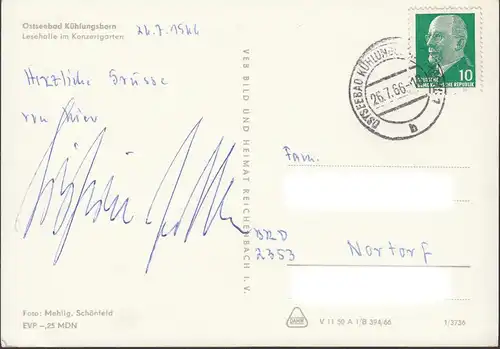 Ostseebad Kühlungsborn
Lesehalle im Konzertgarten
26.7.1966
Herzliche Grüsse
von Ihrer
Foto: Mehlig, Schönfeld
EVP -,25 MDN
VEB BILD UND HEIMAT REICHENBACH I. V.
OSTSEEBAD KÜHLUNGS
26.7.66
b
10
DEUTSCHE
DEMOKRATISCHE REPUBLIK
Fam.
BRD
2353 Nortorf
V 11 50 A 1/B 394/66
1/3736